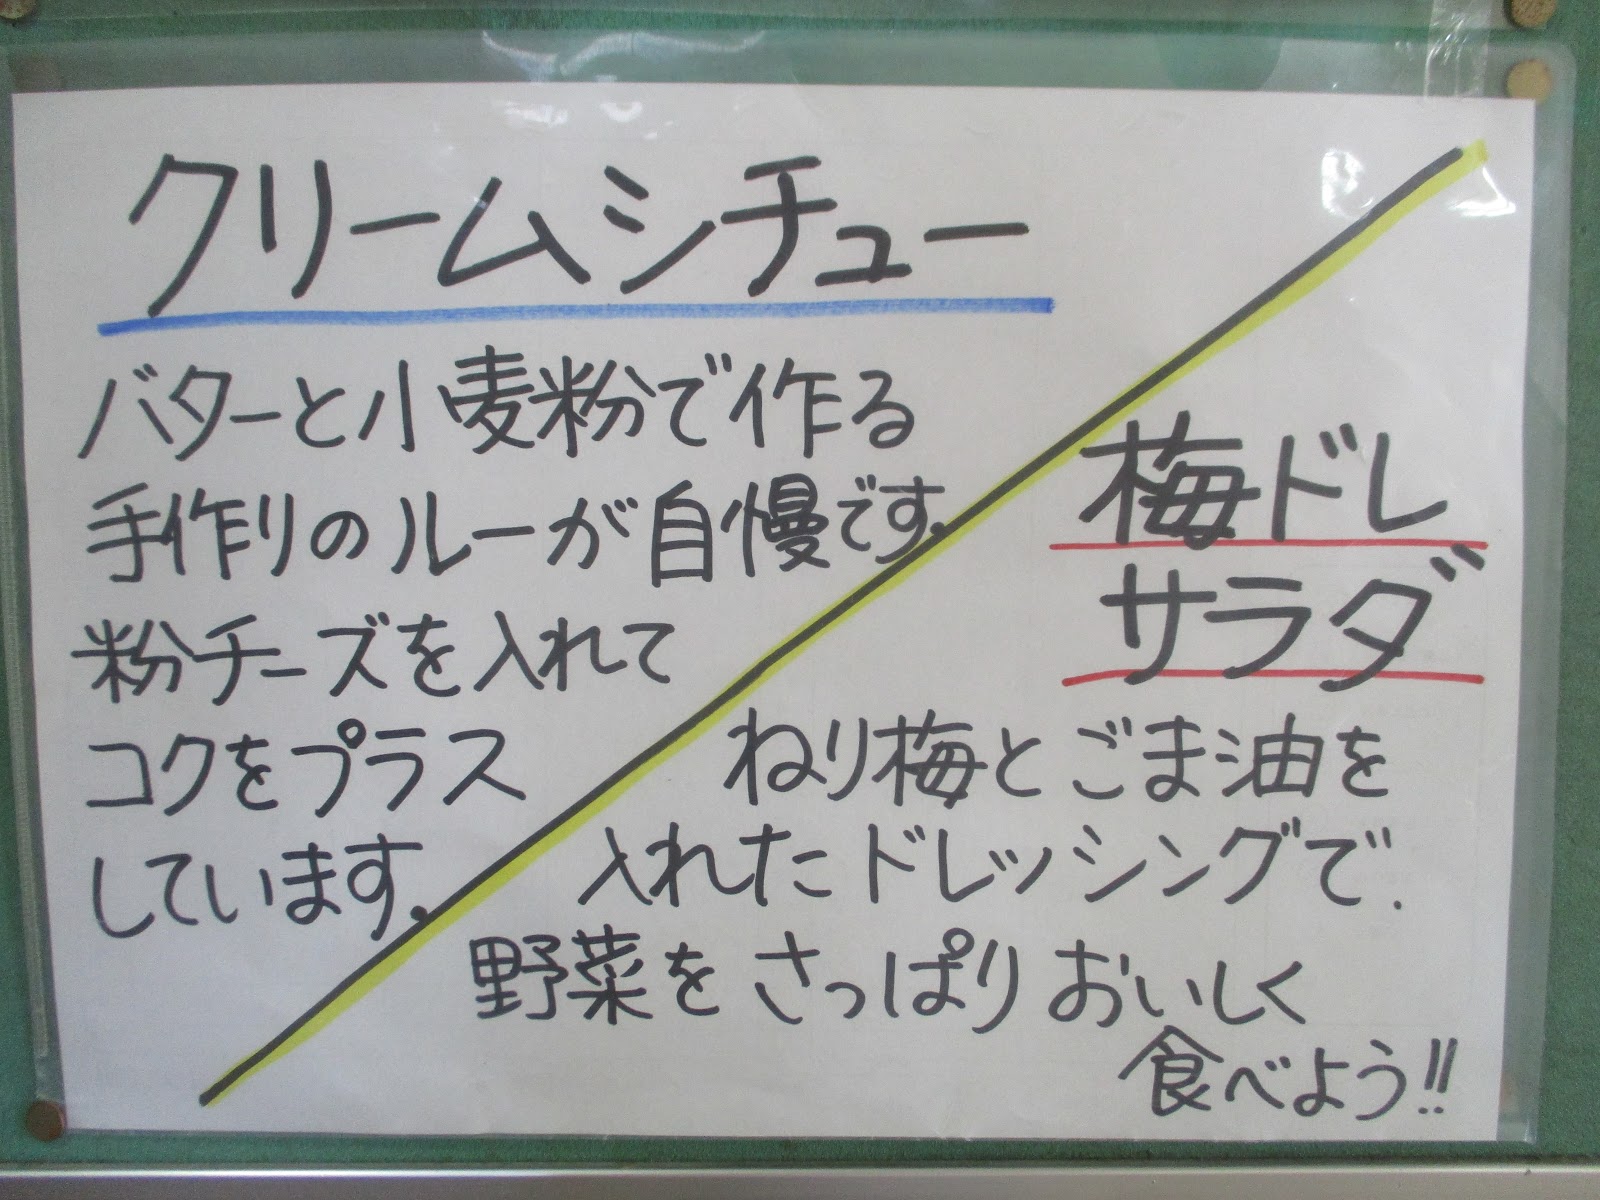 クリームシチュー
バターと小麦粉で作る
手作りのルーが自慢です.
粉チーズを入れて
コクをプラス
しています.
梅ドレ
サラダ
ねり梅とごま油を
入れたドレッシングで.
野菜をさっぱりおいしく
食べよう!!